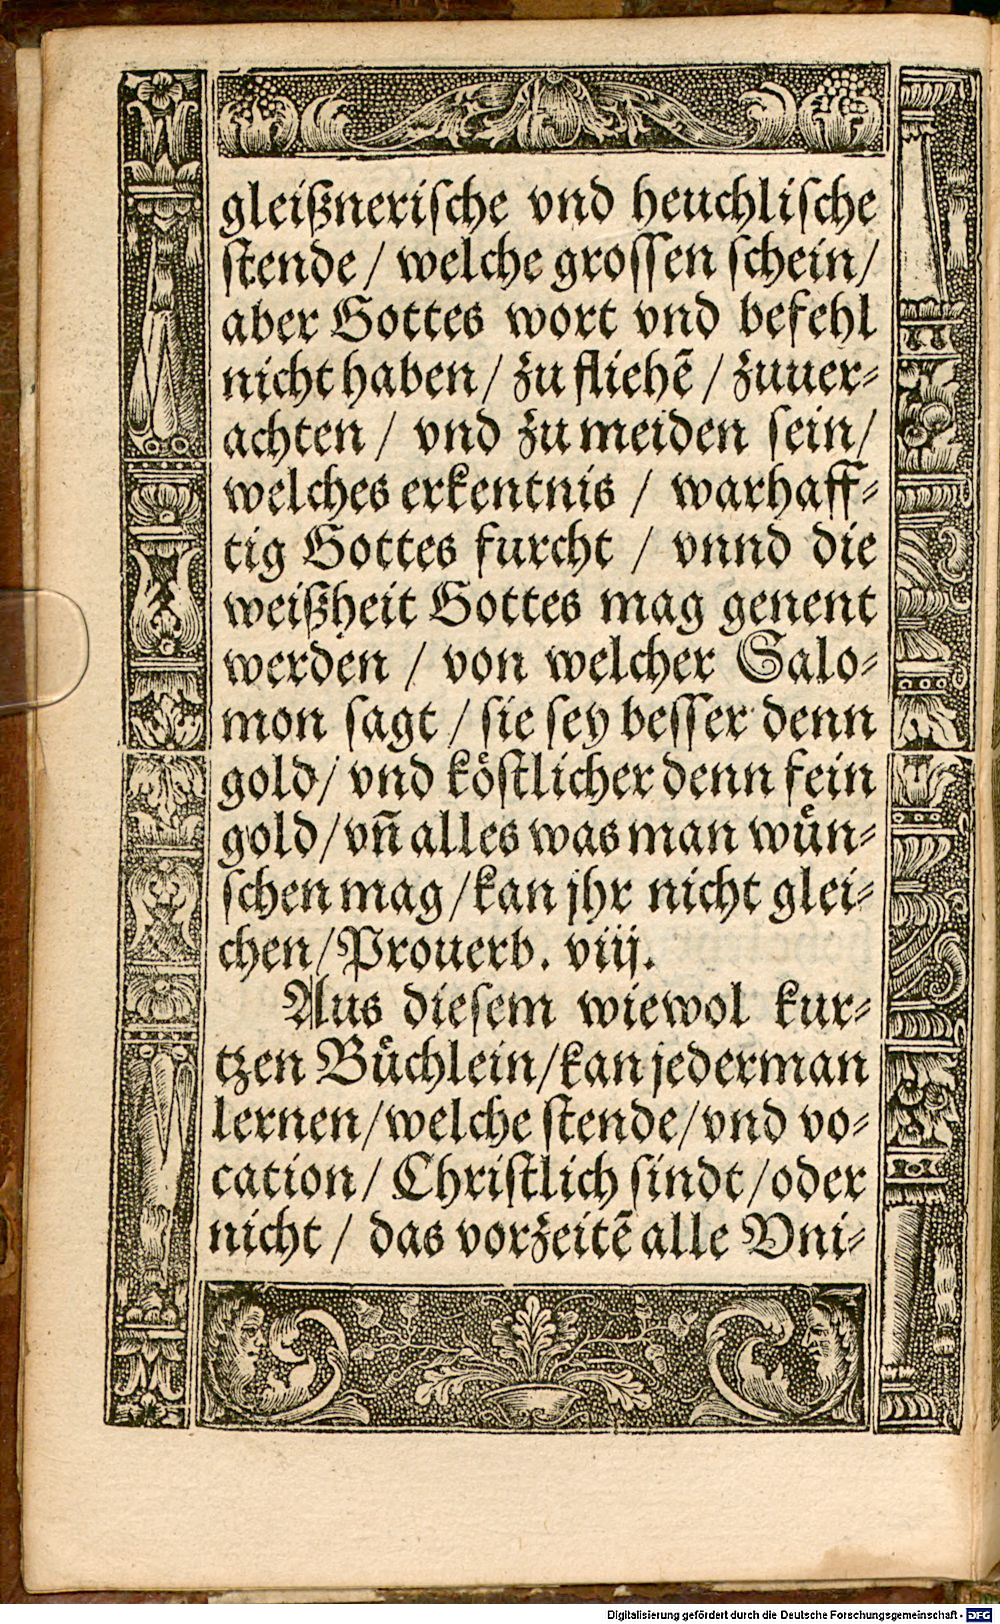 gleiſzneriſche vnd heuchliſche
ſtende / welche groſſen ſchein /
aber Gottes wort vnd befehl
nicht haben / zu fliehẽ / zuuer⸗
achten / vnd zu meiden ſein /
welches erkentnis / warhaff⸗
tig Gottes furcht / vnnd die
weiſzheit Gottes mag genent
werden / von welcher Salo⸗
mon ſagt / ſie ſey beſſer denn
gold / vnd koͤſtlicher denn fein
gold / vñ alles was man wuͤn⸗
ſchen mag / kan jhr nicht glei⸗
chen / Prouerb. viij.
Aus dieſem wiewol kur⸗
tzen Buͤchlein / kan jederman
lernen / welche ſtende / vnd vo⸗
cation / Chriſtlich ſindt / oder
nicht / das vorzeitẽ alle Vni⸗
Digitalisierung gefördert durch die Deutsche Forschungsgemeinschaft - DFG